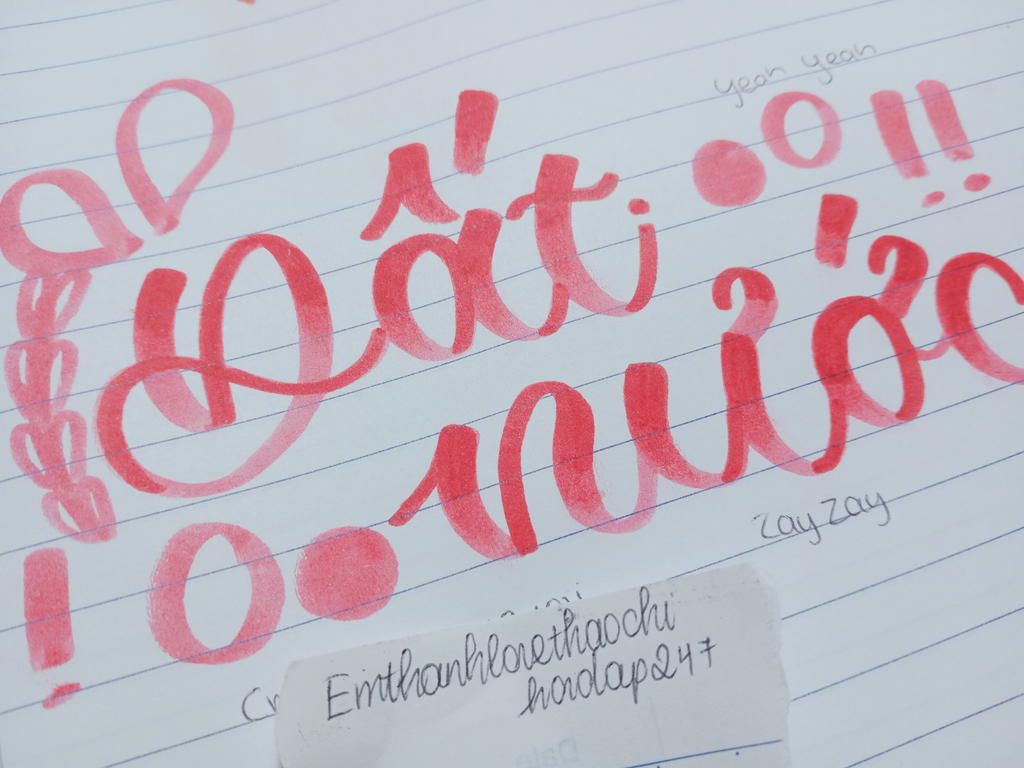 yeah yeah
Đất
nước
!!
zay zay
!
Emthanhlovethaochi
hoidap247